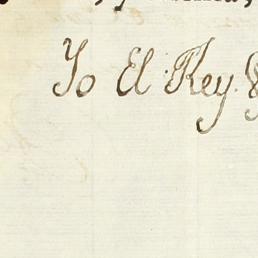 Yo El Rey.